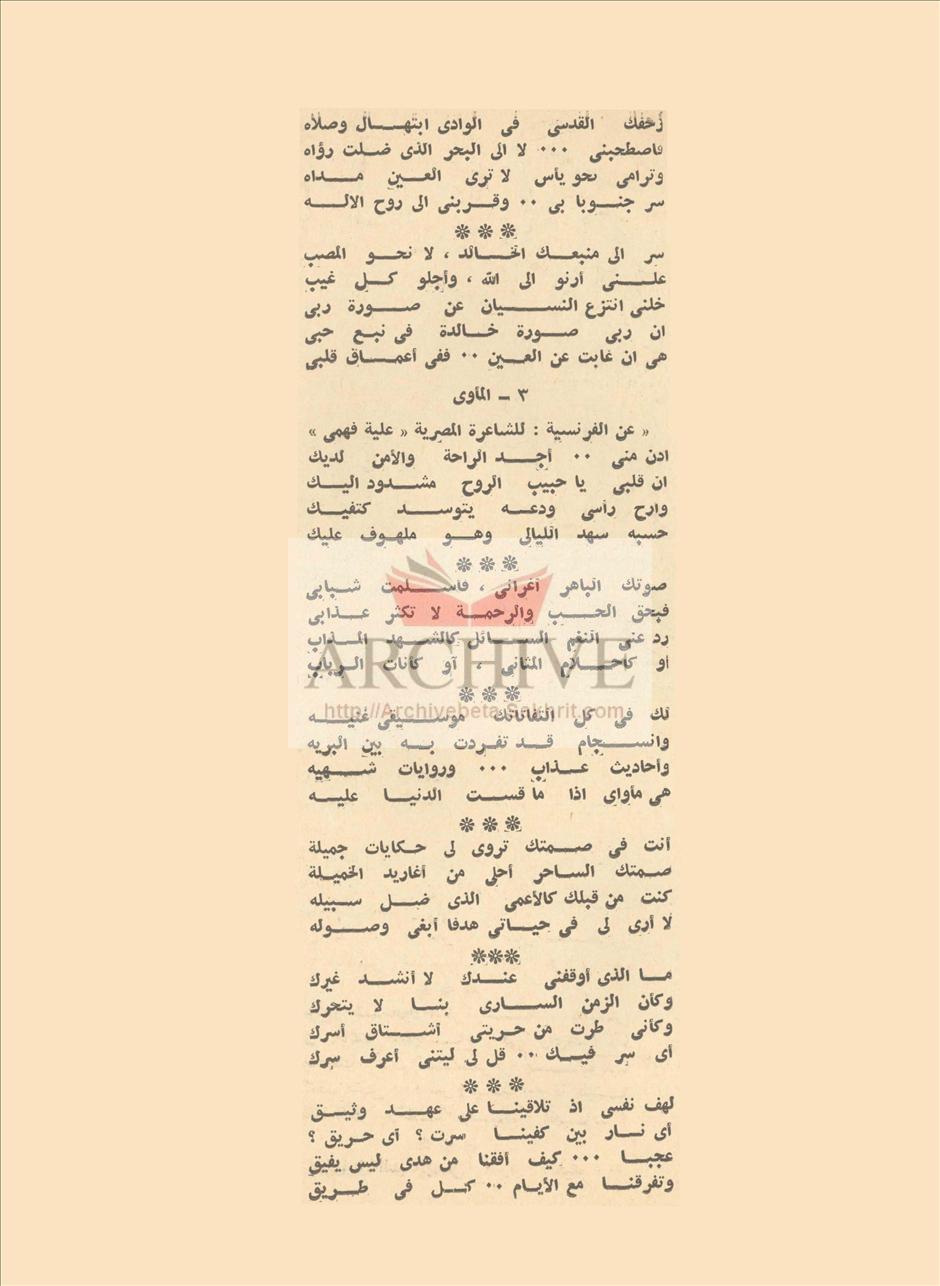 زحفك القدسى فى الوادى ابتهال وصلاه
فاصطحبنى ٠٠٠ لا الى البحر الذى ضلت رؤاه
وترامى نحو يأس لا ترى العين مداه
سر جنوبا بى ٠٠ وقربنى الى روح الاله
***
سر الى منبعك الخالد ، لا نحو المصب
علنى أرنو الى الله ، وأجلو كل غيب
خلنى انتزع النسيان عن صورة ربى
ان ربى صورة خالدة فى نبع حبى
هى ان غابت عن العين ٠٠ ففى أعماق قلبى
٣ - المأوى
« عن الفرنسية : للشاعرة المصرية « علية فهمى »
ادن منى ٠٠ أجد الراحة والأمن لديك
ان قلبى يا حبيب الروح مشدود اليك
وارح رأسى ودعه يتوسد كتفيك
حسبه سهد الليالى وهو ملهوف عليك
***
صوتك الباهر أغرانى ، فأسلمت شبابى
فبحق الحب والرحمة لا تكثر عذابى
رد عنى النغم السائل كالشهد المذاب
أو كأحلام المثانى ، أو كأنات الرباب
ARCHIVE
***
http://Archivebeta.Sakhrit.com
لك فى كل التفاتاتك موسيقى غنيه
وانسجام قد تفردت به بين البريه
وأحاديث عذاب ٠٠٠ وروايات شهيه
هى مأواى اذا ما قست الدنيا عليه
***
أنت فى صمتك تروى لى حكايات جميلة
صمتك الساحر أحلى من أغاريد الخميلة
كنت من قبلك كالأعمى الذى ضل سبيله
لا أرى لى فى حياتى هدفا أبغى وصوله
***
ما الذى أوقفنى عندك لا أنشد غيرك
وكأن الزمن السارى بنا لا يتحرك
وكأنى طرت من حريتى أشتاق أسرك
أى سر فيك ٠٠ قل لى ليتنى أعرف سرك
***
لهف نفسى اذ تلاقينا على عهد وثيق
أى نار بين كفينا سرت ؟ أى حريق ؟
عجبا ٠٠٠ كيف أفقنا من هدى ليس يفيق
وتفرقنا مع الأيام ٠٠ كل فى طريق